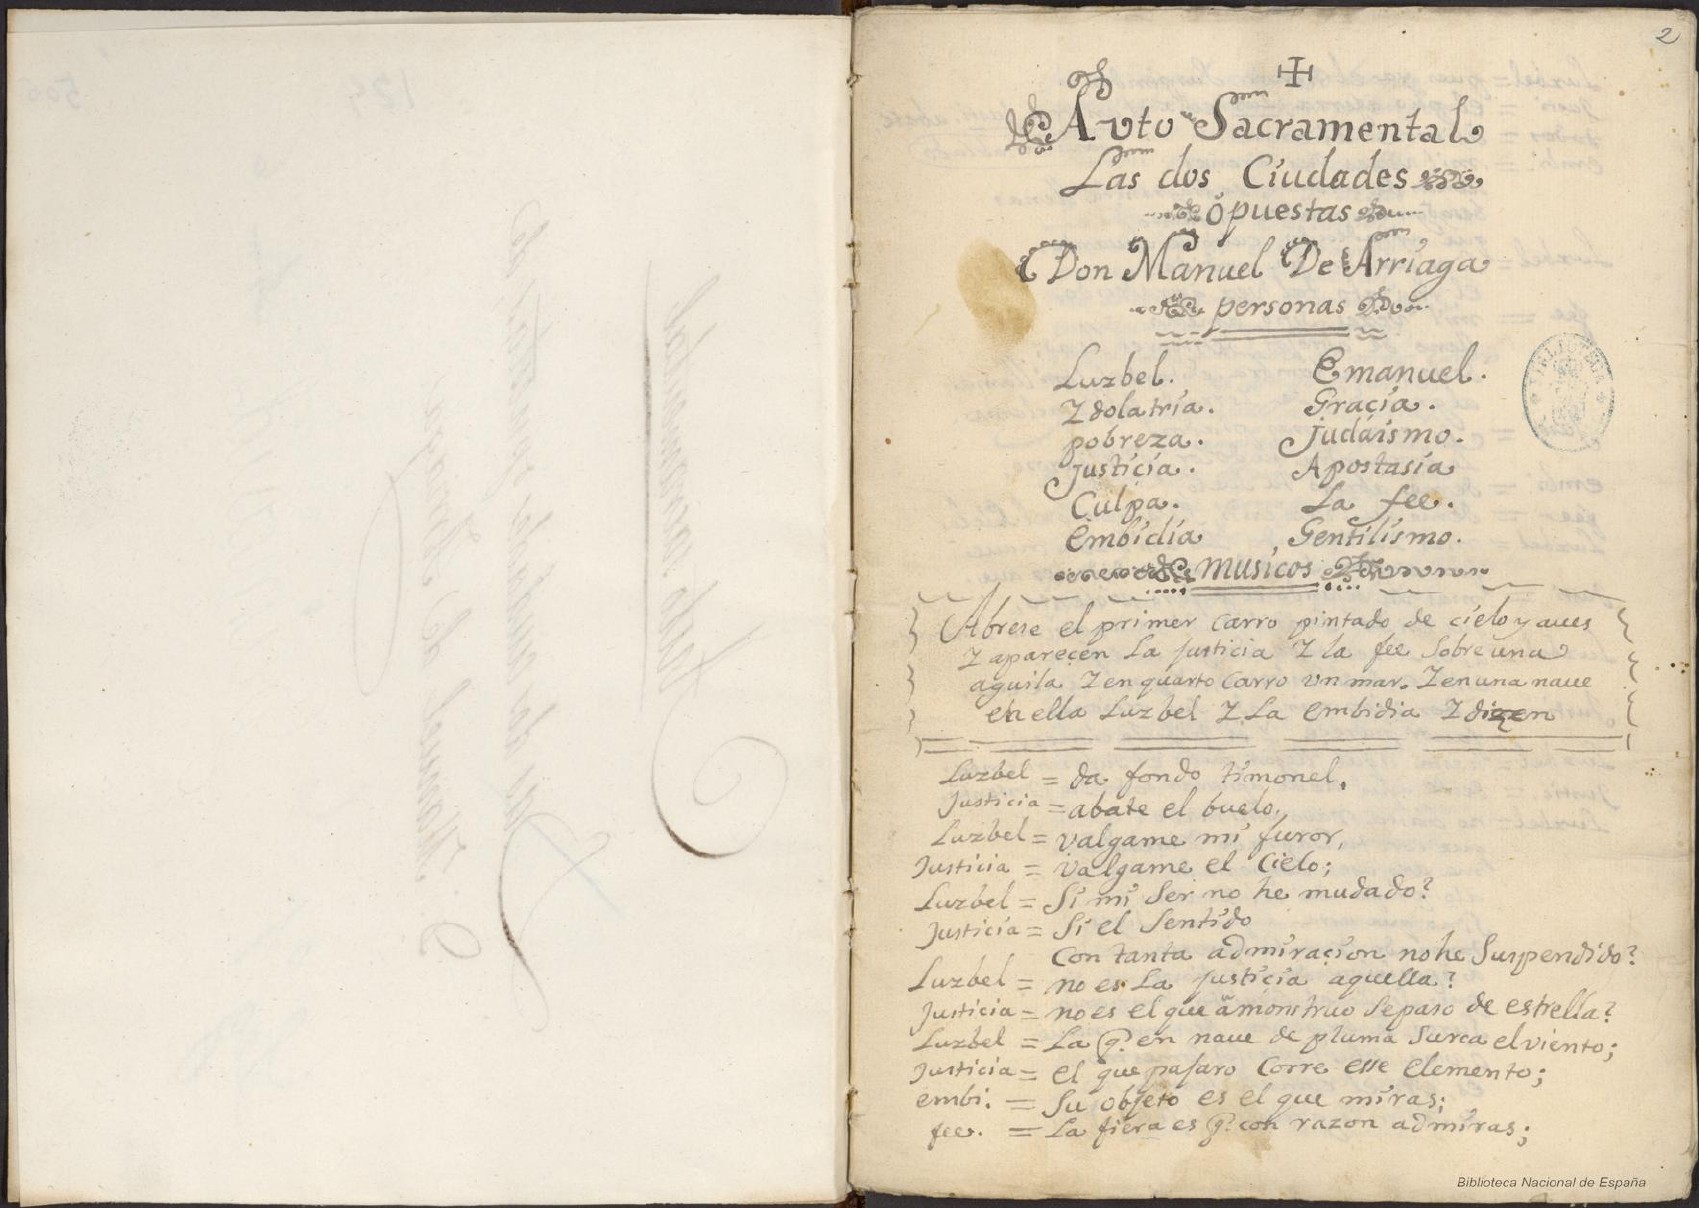 2
Auto Sacramental
Las dos Ciudades
opuestas
Don Manuel De Arriaga
personas
Luzbel. Emanuel.
Ydolatria. Gracia.
pobreza. Judaismo.
Justicia. Apostasia
Culpa. La fee.
Embidia Gentilismo.
musicos
Abrese el primer carro pintado de cielo y aues
Y aparecen La justicia Y la fee sobre una
aguila Y en quarto Carro vn mar. Y en una naue
en ella Luzbel Y La embidia Y dizen
Luzbel = da fondo timonel.
Justicia = abate el buelo.
Luzbel = valgame mi furor,
Justicia = valgame el Cielo;
Luzbel = Si mi Ser no he mudado?
Justicia = Si el Sentido
Con tanta admiraçion no he Suspendido?
Luzbel = no es La justiçia aquella?
Justicia = no es el que â monstruo Se paso de estrella?
Luzbel = La q.e en naue de pluma Surca el viento;
Justicia = el que pajaro Corre esse elemento;
embi. = Su objeto es el que miras;
fee. = La fiera es q.e con razon admiras;
BIBLIOTECA
Auto sacramental
Las dos ciudades opuestas de
D. Manuel de Arriaga
Biblioteca Nacional de España